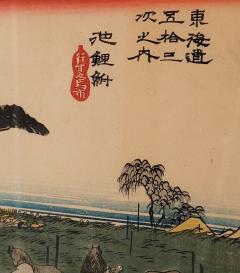 東海道
五拾三
次之内
池鯉鮒